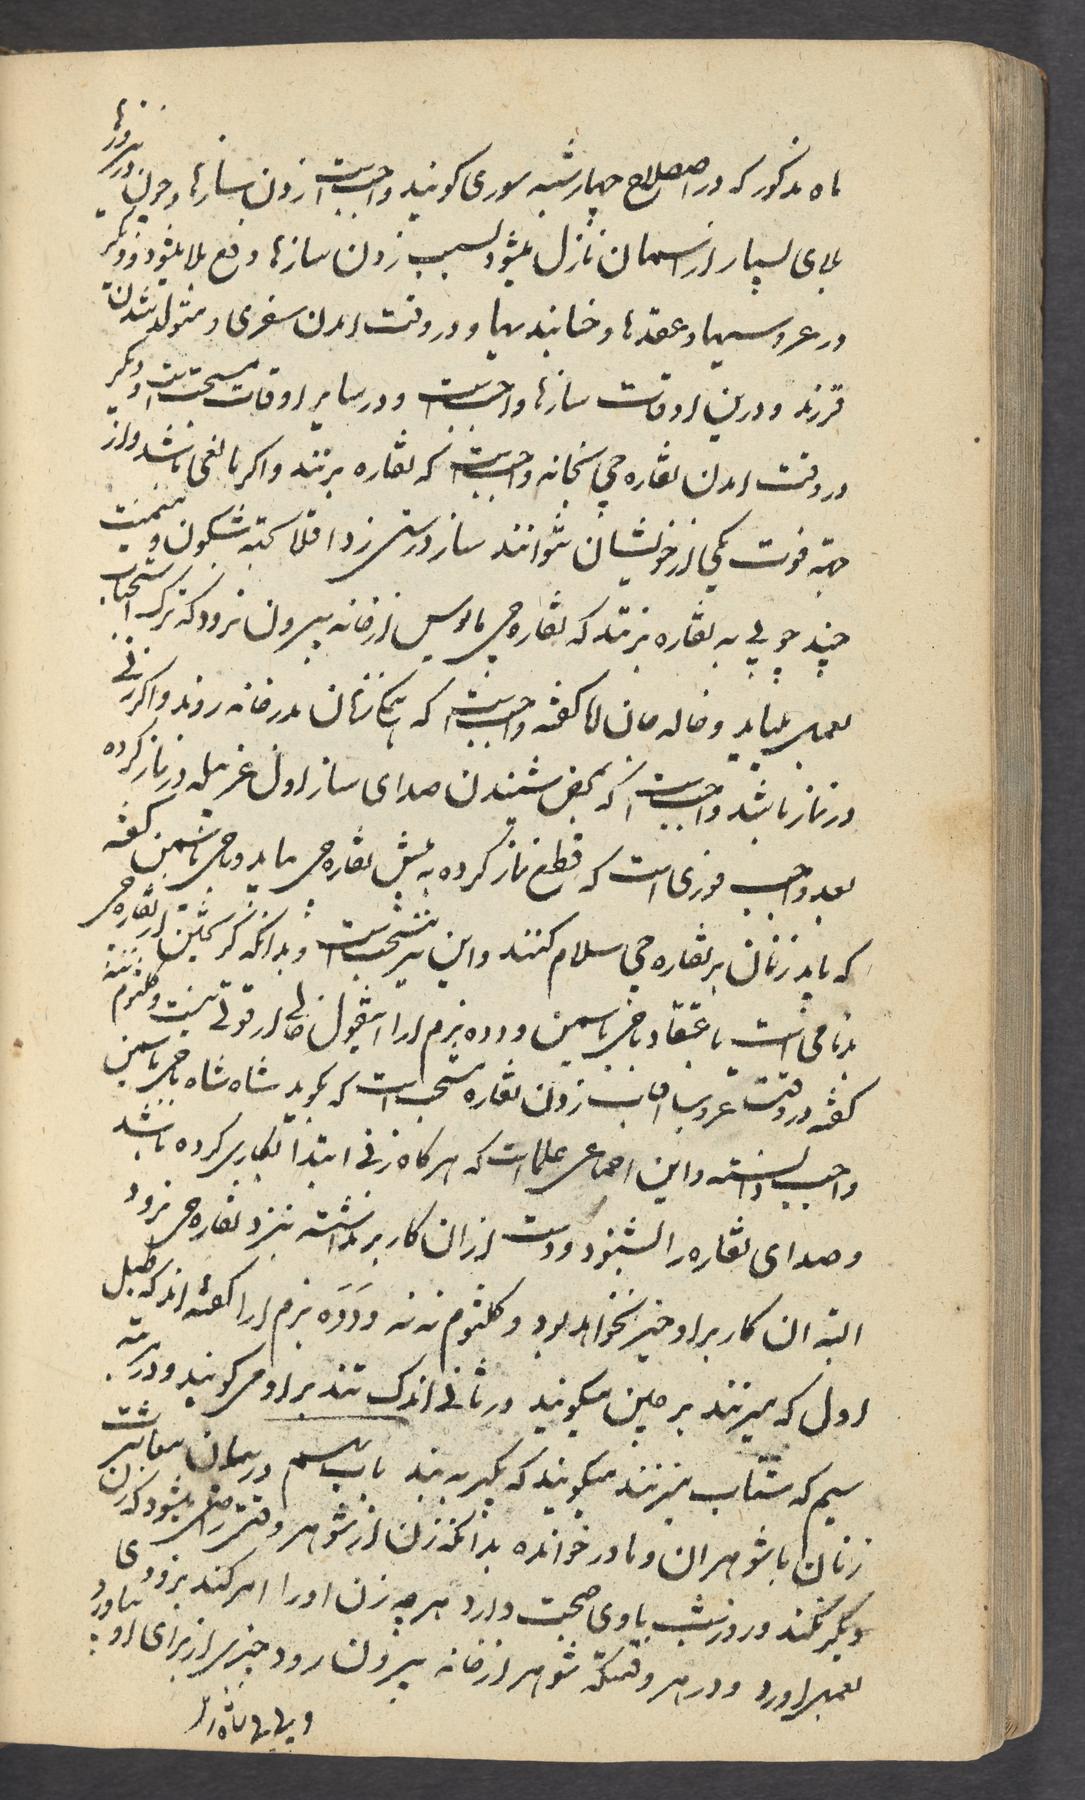 ماه مذکور که در اصطلاح چهارشنبه سوری کویند واجبست زدن سازها و چون در روزها
بلای بسیار از اسمان نازل میشود بسبب زدن سازها دفع بلا میشود و دیکر
در عروسیها و عقدها و ختانیدنها و در وقت امدن سفری و متولد شدن
فرزند و درین اوقات سازها واجبست و در سایر اوقات مستحبست و دیکر
در وقت امدن نقاره چی بخانه واجبست که نقاره بزنند و اکر مانعی باشد و از
جهته فوت یکی از خویشان نتوانند ساز درستی زد اقلا بجهته شکون و میمنت
چند چوبی به نقاره بزنند که نقاره چی مایوس از خانه بیرون نرود که ترک استحباب
بعمل میاید و خاله جان اقا کفته واجبست که همکی زنان بدر خانه روند و اکر زنی
در نماز باشد واجبست که بمحض شنیدن صدای ساز اول غربیله در نماز کرده
بعد واجب فوری است که قطع نماز کرده به پیش نقاره چی بیاید و باجی یاسمن کفته
که باید زنان بر نقاره چی سلام کنند و این نیز مستحبست و بدانکه کریختن از نقاره چی
بدنامی است باعتقاد باجی یاسمن و دده بزم ارا اینقول خالی از قوتی نیست و کلثوم ننه
کفته در وقت غروب افتاب زدن نقاره مستحب است که بکوید شاه شاه باجی یاسمن
واجب دانسته و این اجماعی علماست که هرکاه زنی ابتدا بکاری کرده باشد
و صدای نقاره را بشنود و دست از ان کار برنداشته بنزد نقاره چی نرود
البته ان کار بر او خیر نخواهد بود و کلثوم ننه و دده بزم ارا کفته اند که طبل
اول که میزنند برچین میکویند در ثانی اندک تند برو میکویند و در مرتبه
سیم که شتاب میزنند میکویند که بکیر به بند باب سیم در بیان معاشرت
زنان با شوهران و مادر خوانده بدانکه زن از شوهر وقتی راضی میشود که زن
دیکر نکند و روز و شب با وی صحبت دارد هر چه زن او را امر کند بزودی
بعمل اورد و در هر وقتیکه شوهر از خانه بیرون رود چیزی از برای او بیاورد